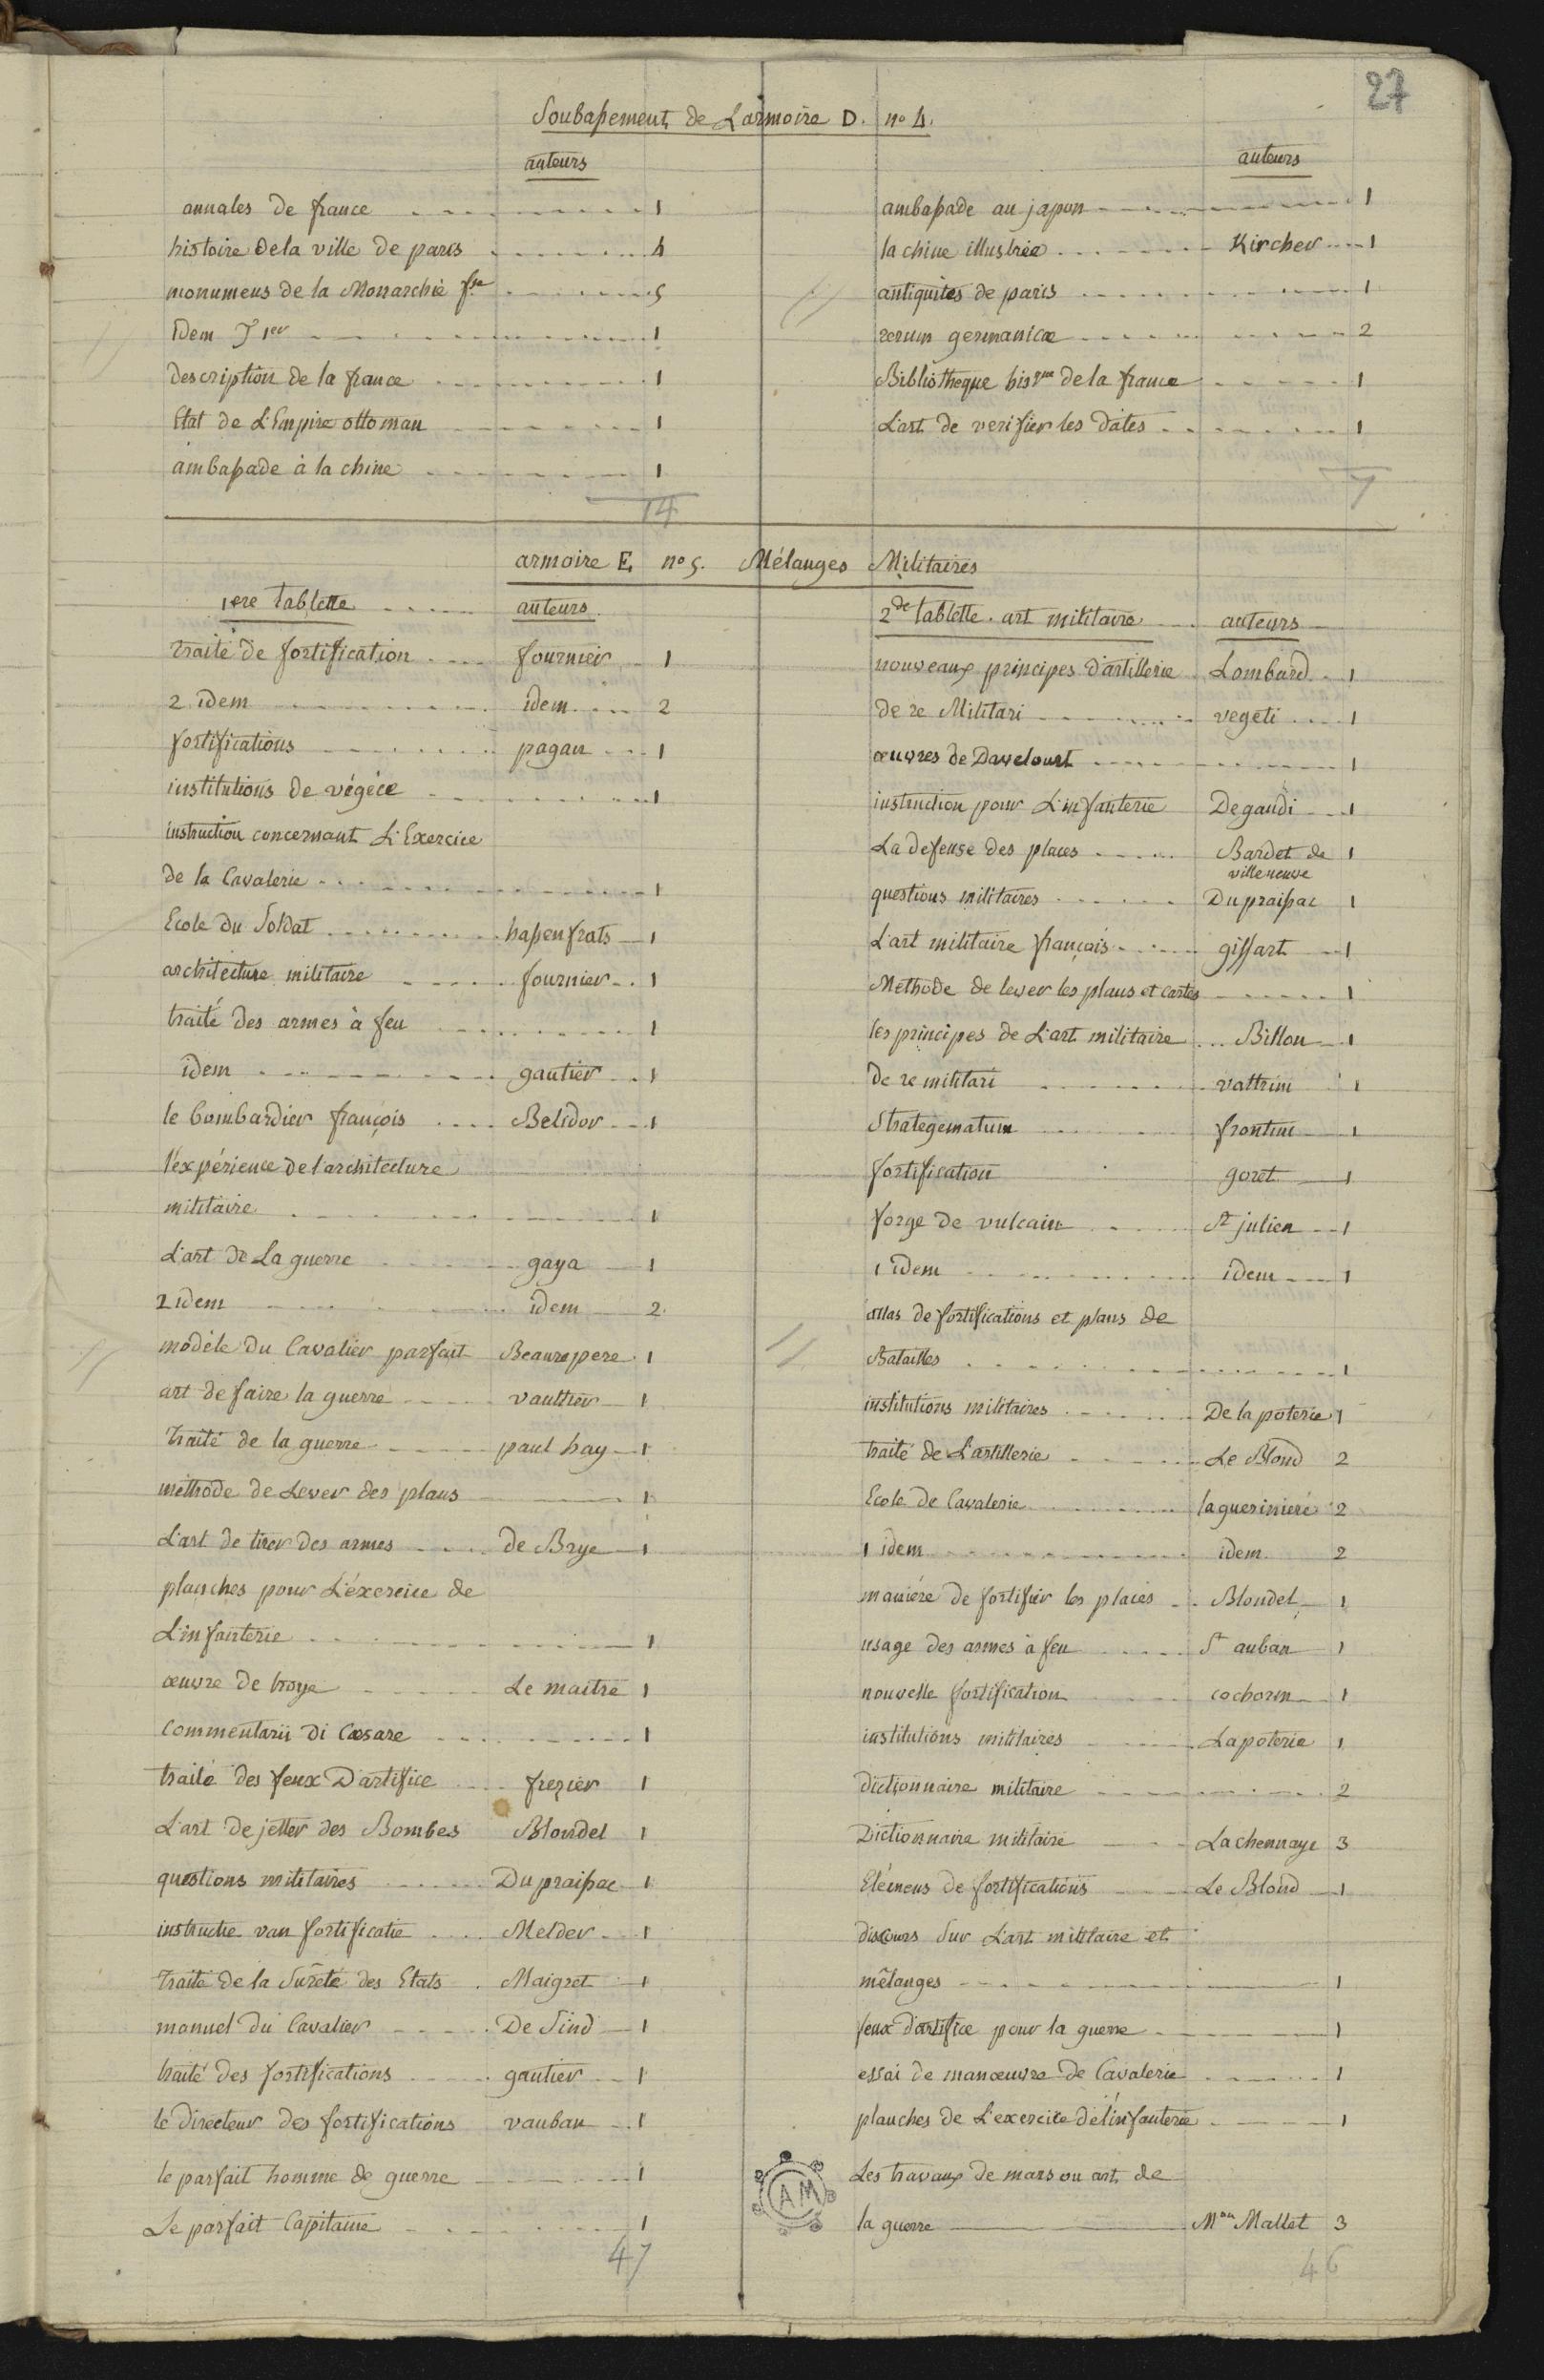 27
Soubassement de L'armoire D. n° 4.
auteurs
annales de france 1
histoire de la ville de paris 4
monumens de la Monarchie fse 5
idem T 1er 1
description de la france 1
Etat de L'Empire ottoman 1
ambassade à la chine 1
14
auteurs
ambassade au japon 1
la chine illustrée Kircher 1
antiquités de paris 1
rerum germanicæ 2
Bibliotheque hisque de la france 1
L'art de verifier les dates 1
7
armoire E, n° 5. Mélanges Militaires
1ere tablette auteurs
traité de fortification fournier 1
2 idem idem 2
fortifications pagan 1
institutions de végéce 1
instruction concernant L'Exercice
de la Cavalerie 1
Ecole du Soldat hassenfrats 1
architecture militaire fournier 1
traité des armes à feu 1
idem gautier 1
le bombardier françois Belidor 1
l'éxpérience de l'architecture
militaire 1
L'art de La guerre gaya 1
2 idem idem 2
modéle du Cavalier parfait Beaurepere 1
art de faire la guerre vaultier 1
traité de la guerre paul hay 1
méthode de Lever des plans 1
L'art de tirer des armes de Brye 1
planches pour L'éxercice de
L'infanterie 1
œuvre de troye Le maitre 1
Commentarii di Cæsare 1
traité des feux D'artifice frezier 1
L'art de jetter des Bombes Blondel 1
questions militaires Dupraissac 1
instructie van fortificatie Melder 1
traité de la Sûreté des Etats Maigret 1
manuel du Cavalier De Sind 1
traité des fortifications gautier 1
le directeur des fortifications vauban 1
le parfait homme de guerre 1
Le parfait Capitaine 1
47
2de tablette. art militaire auteurs
nouveaux principes d'artillerie Lombard 1
de re Militari vegeti 1
œuvres de Davelourt 1
instruction pour L'infanterie Degaudi 1
La defense des places Bardet de 1
villeneuve
questions militaires Dupraissac 1
L'art militaire français giffart 1
Méthode de lever les plans et cartes 1
les principes de L'art militaire Billon 1
de re militari valtrini 1
Strategematum frontini 1
fortification goret 1
forge de vulcain St julien 1
1 idem idem 1
atlas de fortifications et plans de
Batailles 1
institutions militaires De la poterie 1
traité de L'artillerie Le Blond 2
Ecole de Cavalerie laguerinieré 2
1 idem idem 2
maniére de fortifier les places Blondel 1
usage des armes à feu St auban 1
nouvelle fortification cochorn 1
institutions militaires Lapoterie 1
dictionnaire militaire 2
Dictionnaire militaire Lachennaye 3
Elémens de fortifications Le Blond 1
discours Sur L'art militaire et
mêlanges 1
feux d'artifice pour la guerre 1
essai de manœuvre de Cavalerie 1
planches de L'exercice de l'infanterie 1
Les travaux de mars ou art de
la guerre Mon Mallet 3
46
AM